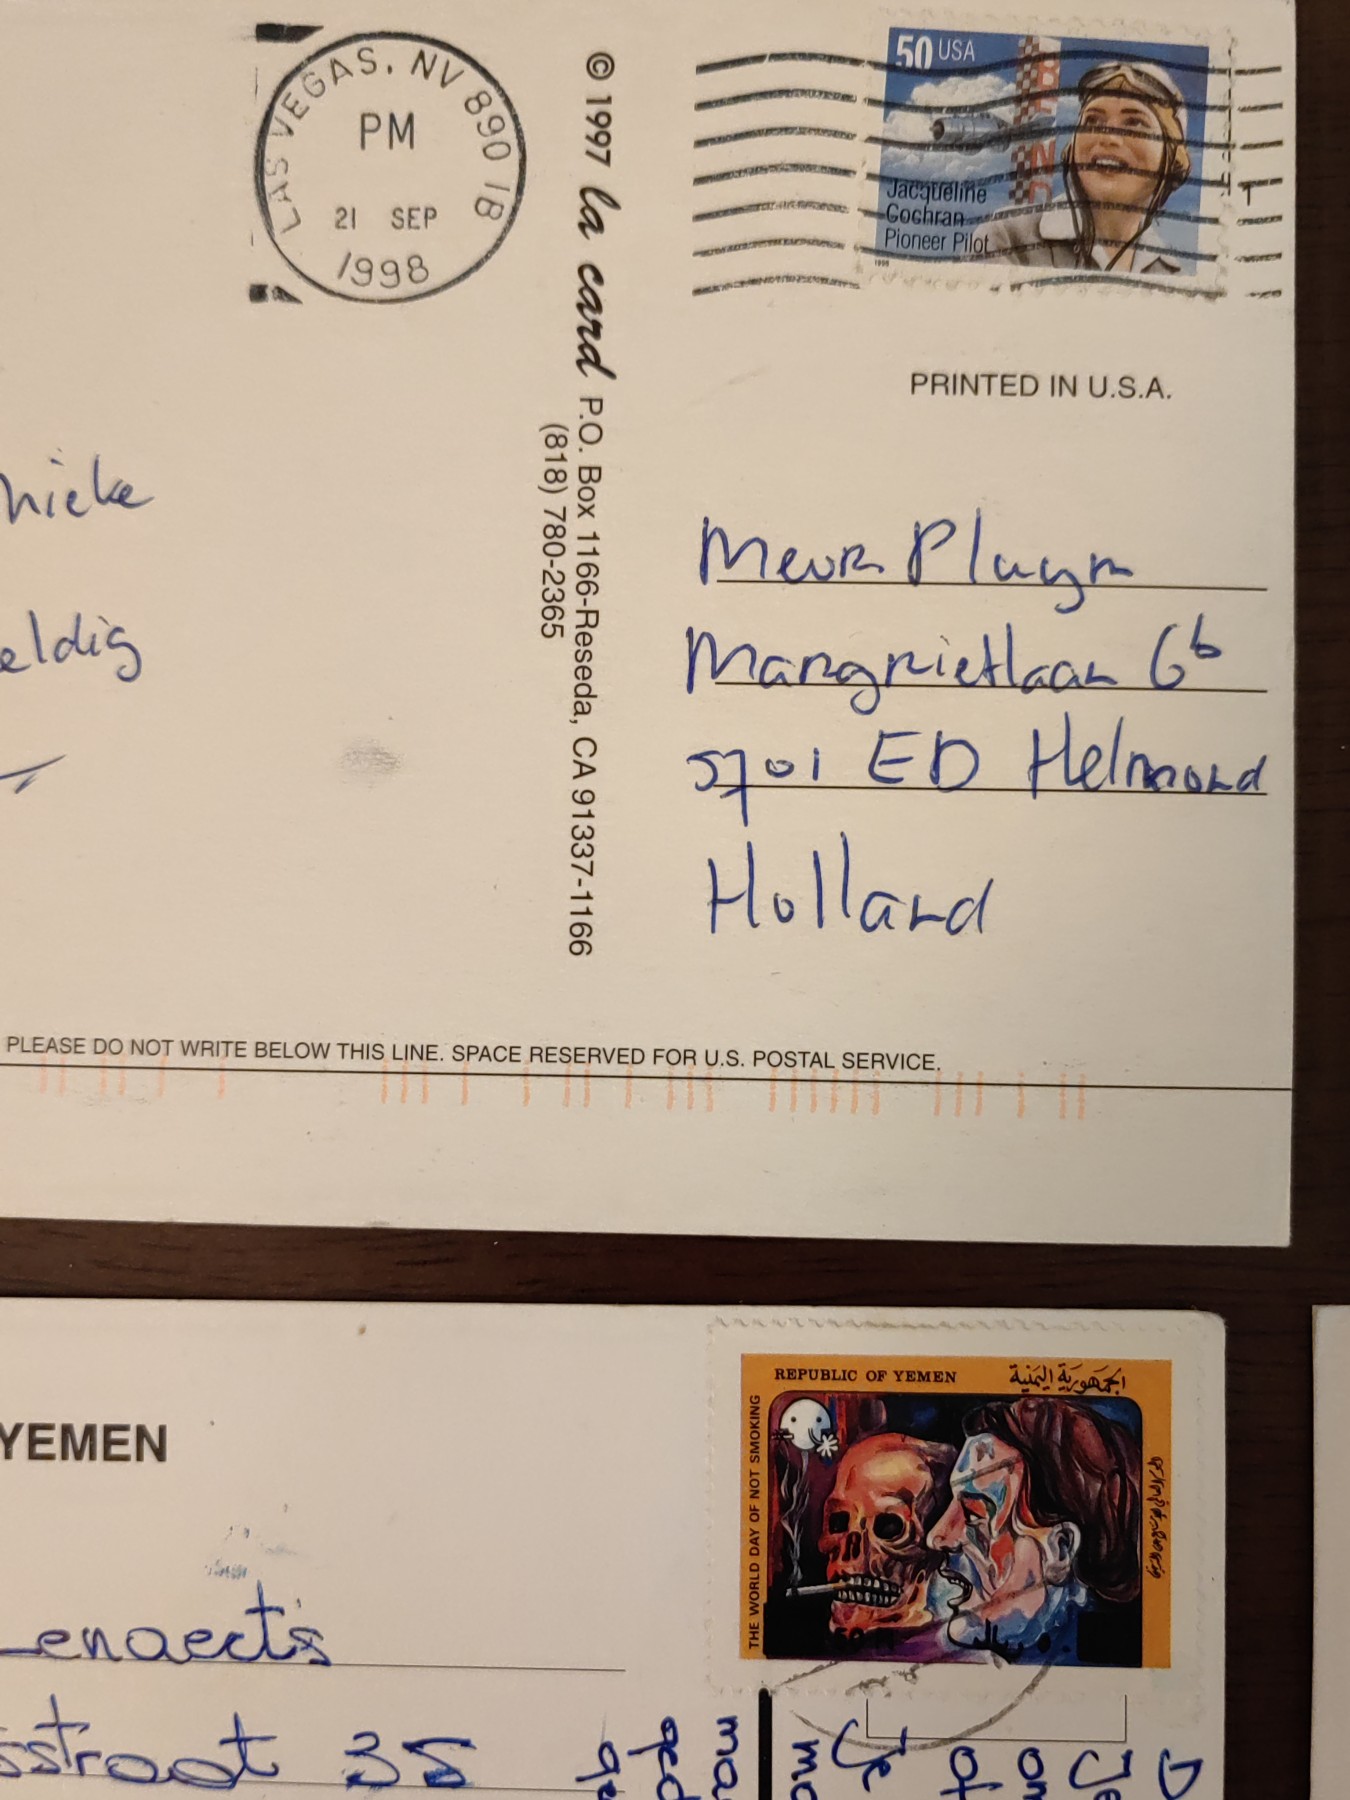 LAS VEGAS, NV 890 1B
PM
21 SEP
1998
50 USA
BEND
Jacqueline
Cochran
Pioneer Pilot
1996
© 1997 la card P.O. Box 1166-Reseda, CA 91337-1166
(818) 780-2365
PRINTED IN U.S.A.
nieke
eldig
Mevr Pluym
Margrietlaan 6b
5701 ED Helmond
Holland
PLEASE DO NOT WRITE BELOW THIS LINE. SPACE RESERVED FOR U.S. POSTAL SERVICE.
REPUBLIC OF YEMEN الجمهورية اليمنية
THE WORLD DAY OF NOT SMOKING
YEMEN
Lenaerts
sstraat 35